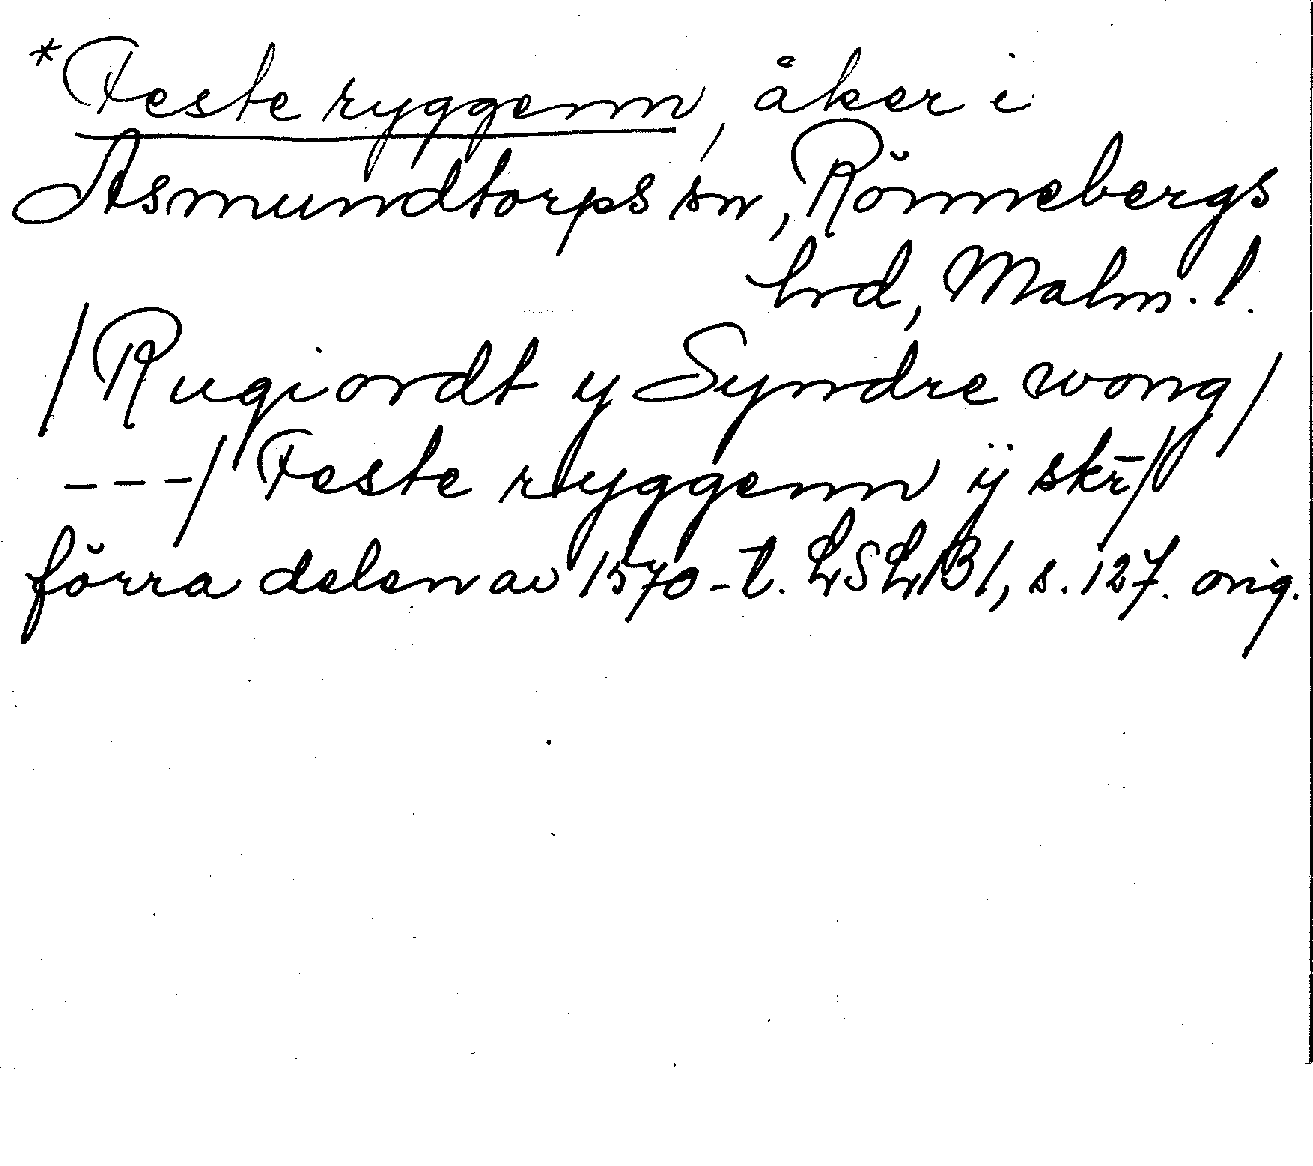 *Feste ryggenn, åker i
Asmundtorps sn, Rönnebergs
hrd, Malm. l.
/Rugiordt y Syndre wong/
---/ Feste ryggenn ij skr̄/
förra delen av 1570-t. LSLJB1, s. 127. orig.